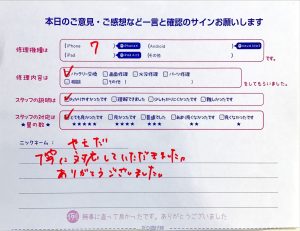 本日のご意見・ご感想など一言と確認のサインお願いします
修理機種は
iPhone 7
Android
iPad
その他
修理内容は
バッテリー交換 画面修理 水没修理 パーツ修理
その他
をしてもらいました。
スタッフの説明は
わかりやすかったです 理解できました 少しわかりにくかったです 難しかったです
スタッフの対応は
とても良かったです 良かったです 普通でした あまり良くなかったです 良くなかったです
★星の数★
★★★★★ ★★★★ ★★★ ★★ ★
ニックネーム：
やまだ
丁寧に対応していただきました。
ありがとうございました。